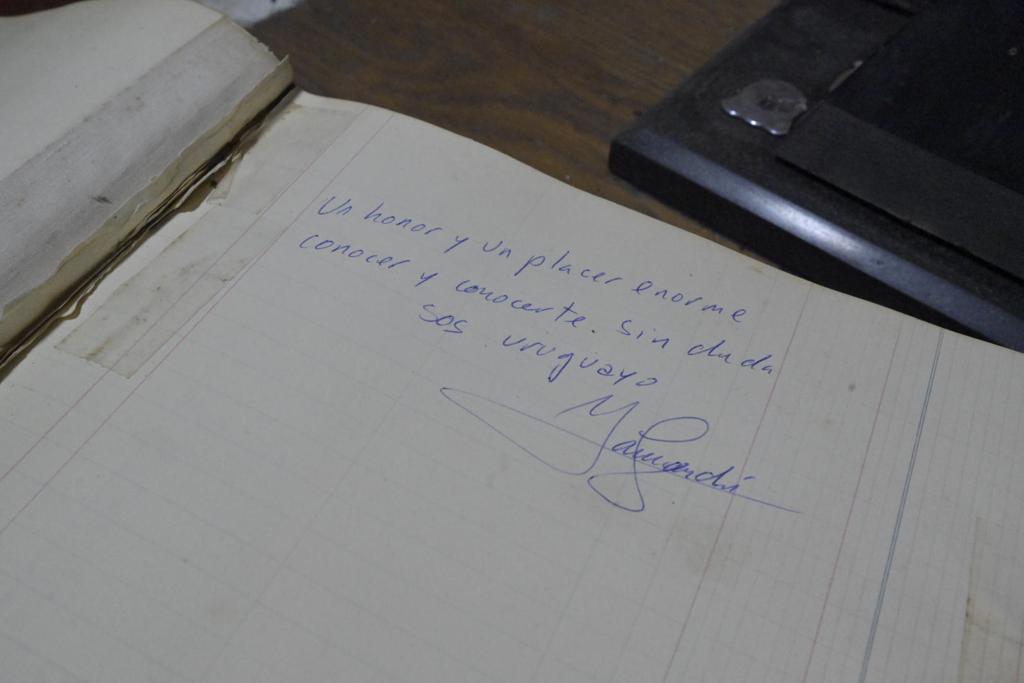 Un honor y un placer enorme
conocer y conocerte. Sin duda
sos uruguayo